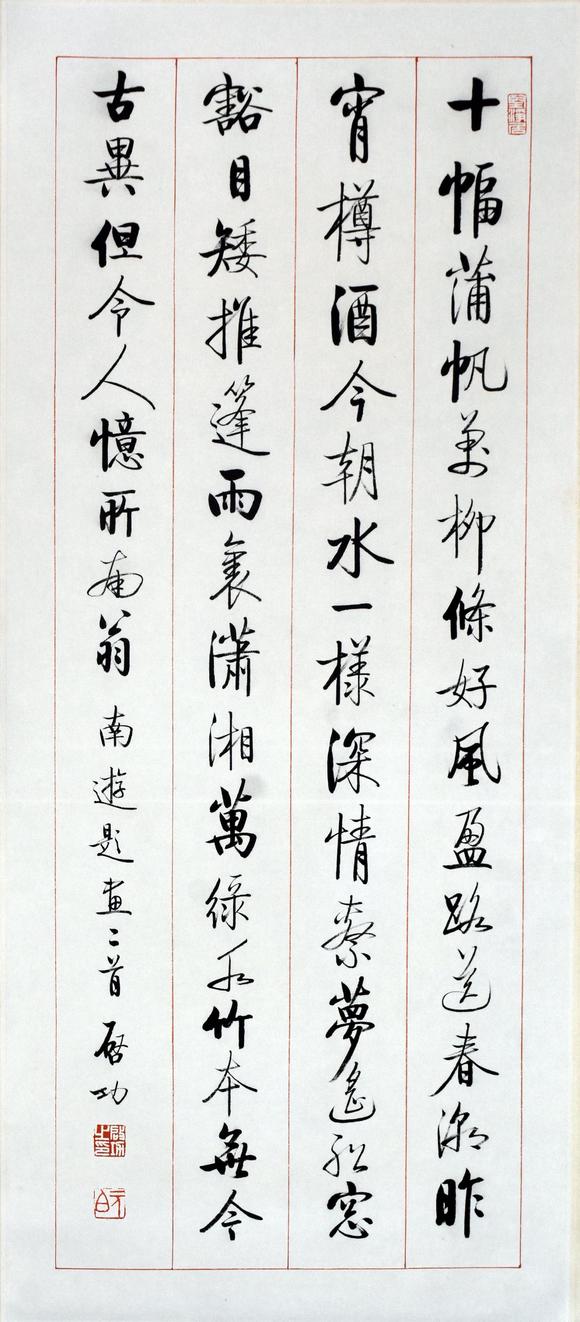 十幅蒲帆萬柳條好風盈路送春潮昨
宵樽酒今朝水一樣深情繫夢遙船窓
豁目矮推篷雨裏瀟湘萬綠水竹本無今
古異但令人憶所南翁 南遊題畫二首 啓功
啟功之印
元白